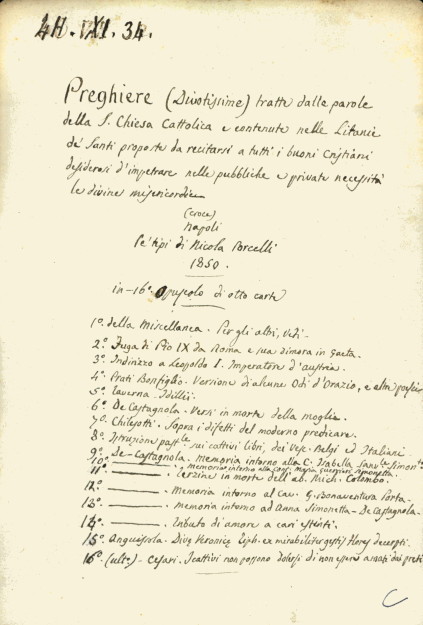 4H. XI. 34.
Preghiere (Divotissime) tratte dalle parole
della S. Chiesa Cattolica e contenute nelle Litanie
de' Santi proposte da recitarsi a tutt'i buoni Cristiani
desiderosi d'impetrare nelle pubbliche e private necessità
le divine misericordie
(croce)
Napoli
Pe' tipi di Nicola Porcelli
1850.
in-16º. Opuscolo di otto carte
1º. della Miscellanea. Per gli altri, vedi-
2º. Fuga di Pio IX da Roma e sua dimora in Gaeta.
3º. Indirizzo a Leopoldo I. Imperatore d'Austria.
4º. Prati Bonfiglio. Versione di alcune Odi d'Orazio, e altre poesie
5º. Taverna. Idillii.
6º. De Castagnola. Versi in morte della moglie.
7º. Chilesotti. Sopra i difetti del moderno predicare.
8º. Istruzione past.le sui cattivi libri, dei Vesc. Belgi ed Italiani
9º. De-Castagnola. Memoria intorno alla C. Isabella Simonetta
10º. ——— . Memoria intorno alla Simonetta
11º. ——— . Terzine in morte dell'ab. Mich. Colombo.
12º. ——— . Memoria intorno al Cav. G. Bonaventura Porta.
13º. ——— . Memoria intorno ad Anna Simonetta-De Castagnola.
14º. ——— . Tributo di amore a cari estinti.
15º. Anguissola. Divæ Veronicæ Giph. ex mirabili
16º. (ulto.) - Cesari. I cattivi non possono dolersi di non essere amati dai preti
C